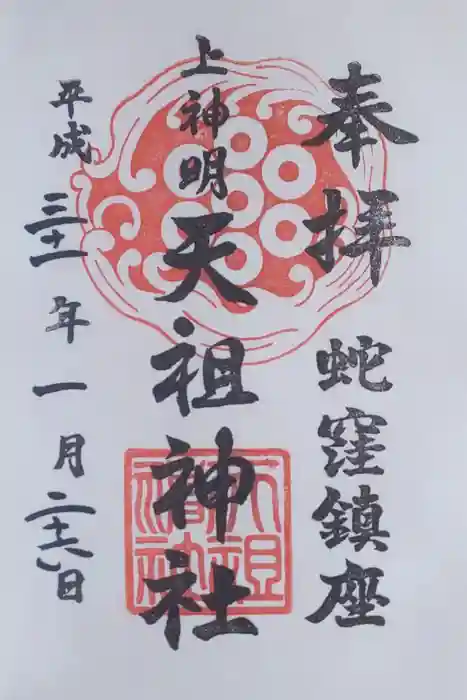 奉拝 蛇窪鎮座
上神明天祖神社
平成三十一年一月二十六日
天祖
神社